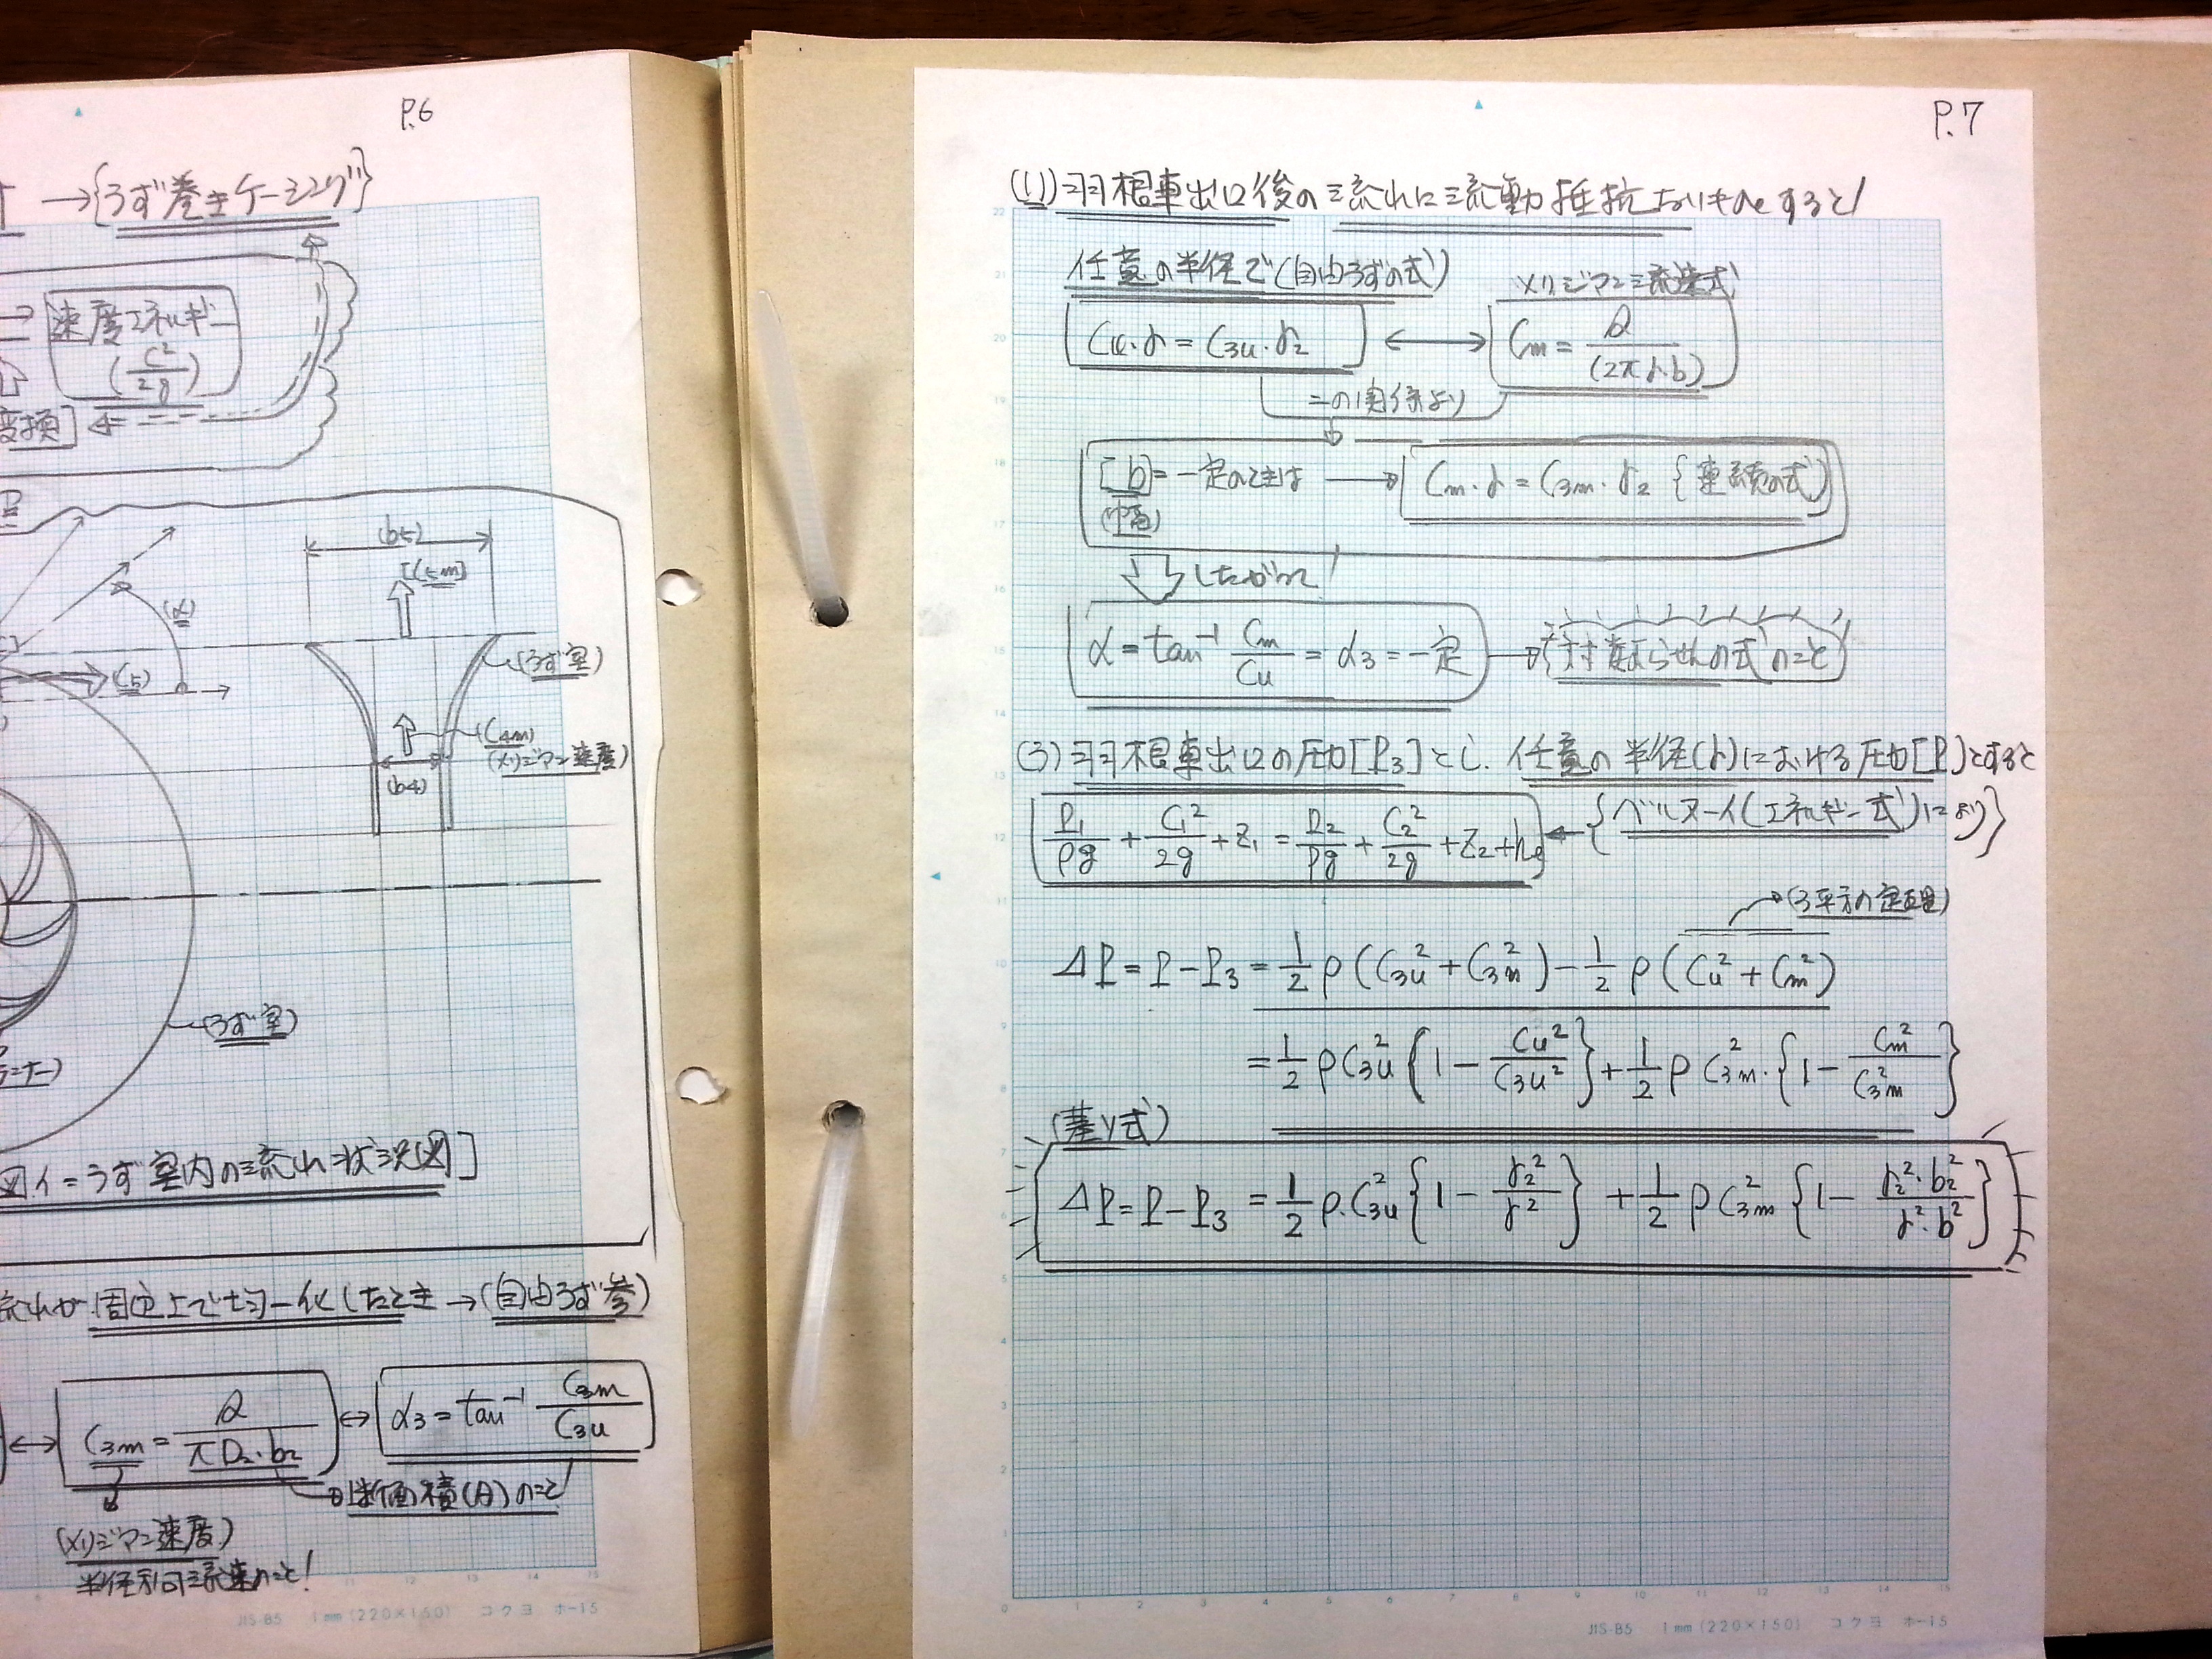 P.6
→{うず巻きケーシング}
速度エネルギー
(C²/2g)
変換]
(b5)
[C5m]
(α)
(C5)
(うず室)
(C4m)
(メリジアン速度)
(b4)
(うず室)
図イ=うず室内の流れ状況図]
流れが周辺上で均一化したとき→(自由うず参)
↔ C3m = Q/(πD2・b2) ↔ α3 = tan⁻¹ C3m/C3u
→断面積(A)のこと
(メリジアン速度)
半径方向流速のこと!
JIS-B5 1mm(220×150) コクヨ ホ-15
P.7
(1))羽根車出口後の流れに流動抵抗ないものとすると!
任意の半径で(自由うずの式)
メリジアン流速式
Cu・r = C3u・r2 ↔ Cm = Q/(2πr・b)
この関係より
[b]=一定のときは → Cm・r = C3m・r2 {連続の式}
(巾)
したがって!
α = tan⁻¹ Cm/Cu = α3 = 一定 → {対数らせんの式のこと
(3)羽根車出口の圧力[P3]とし、任意の半径(r)における圧力[P]とすると
P1/ρg + C1²/2g + Z1 = P2/ρg + C2²/2g + Z2 + he ← {ベルヌーイ(エネルギー式)により}
→(3平方の定理)
ΔP = P - P3 = 1/2 ρ (C3u² + C3m²) - 1/2 ρ (Cu² + Cm²)
= 1/2 ρ C3u² {1 - Cu²/C3u²} + 1/2 ρ C3m²・{1 - Cm²/C3m²}
(基Y式)
ΔP = P - P3 = 1/2 ρ・C3u² {1 - r2²/r²} + 1/2 ρ C3m² {1 - r2²・b2²/r²・b²}
JIS-B5 1mm(220×150) コクヨ ホ-15